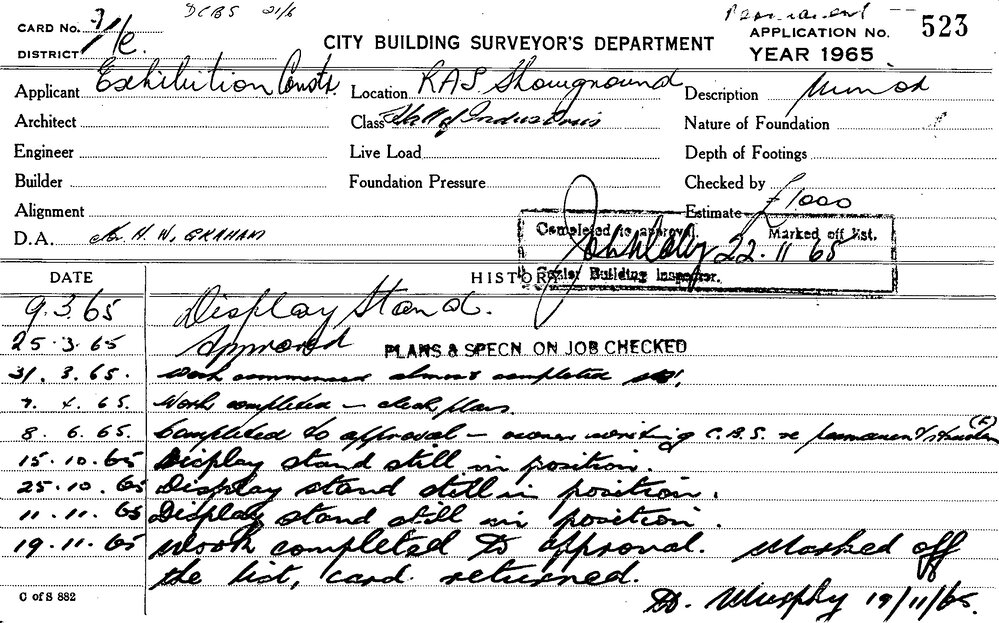 DCBS 21/6
Permanent
CARD No. 7/c.
DISTRICT
CITY BUILDING SURVEYOR'S DEPARTMENT
APPLICATION No. 523
YEAR 1965
Applicant Exhibition Constr
Location RAS. Showground
Description Minor
Architect
Class Hall of Industries
Nature of Foundation
Engineer
Live Load
Depth of Footings
Builder
Foundation Pressure
Checked by
Alignment
Estimate £1,000
D.A. H. W. GRAHAM
Completed to approval. Marked off list.
22.11.65
Senior Building Inspector.
DATE HISTORY
9.3.65 Display Stand.
25.3.65 Approved PLANS & SPECN. ON JOB CHECKED
31.3.65. Work commenced almost completed
7.4.65. Work completed – check plans.
8.6.65. Completed to approval – owner writing C.B.S. re permanent structure
15.10.65 Display stand still in position.
25.10.65 Display stand still in position.
11.11.65 Display stand still in position.
19.11.65 Work completed to approval. Marked off
the list, card returned.
C of S 882
D. Murphy 19/11/65.